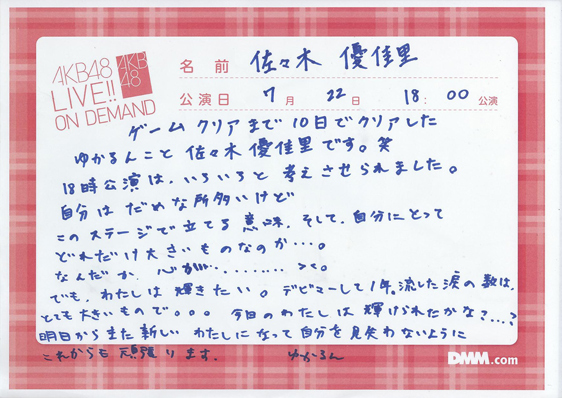 AKB48
LIVE!!
ON DEMAND
AKB
48
名前 佐々木 優佳里
公演日 7月 22日 18:00 公演
ゲームクリアまで10日でクリアした
ゆかるんこと 佐々木優佳里です。笑
18時公演は、いろいろと考えさせられました。
自分はだめな所多いけど
このステージで立てる意味、そして、自分にとって
どれだけ大きいものなのか…。
なんだか、心が…......... ><。
でも、わたしは輝きたい。デビューして1年。流した涙の数は、
とても大きいもので。。。今日のわたしは輝けられたかな?...?
明日からまた新しいわたしになって自分を見失わないように
これからも頑張ります。 ゆかるん
DMM.com